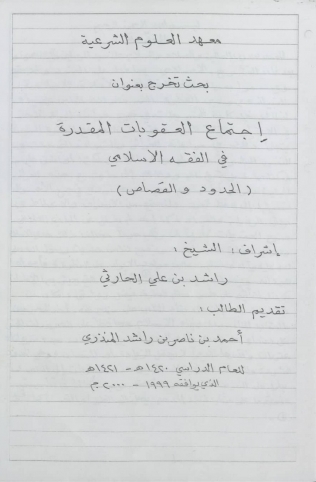 معهد العلوم الشرعية
بحث تخرج بعنوان
إجتماع العقوبات المقدرة
في الفقه الاسلامي
(الحدود والقصاص)
بإشراف: الشيخ:
راشد بن علي الحارثي
تقديم الطالب:
أحمد بن ناصر بن راشد المنذري
للعام الدراسي ١٤٢٠هـ - ١٤٢١هـ
الذي يوافقه ١٩٩٩ - ٢٠٠٠م